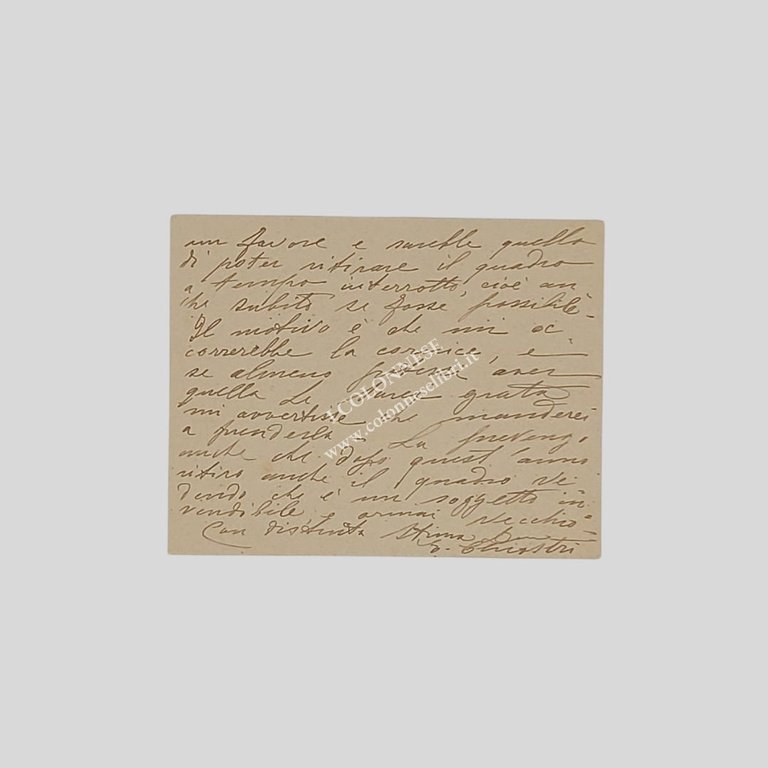 un favore e sarebbe quello
di poter ritirare il quadro
a tempo interrotto, cioè an
che subito se fosse possibile.
Il motivo è che mi oc
correrebbe la cornice, e
se almeno potessi aver
quella Le sarei grata
mi avvertisse che manderei
a prenderla. La prevengo
anche che dopo quest'anno
ritiro anche il quadro ve
dendo che è un soggetto in
vendibile e ormai vecchio.
Con distinta stima
E. Chiostri
I COLONNESE
www.colonneselibri.it